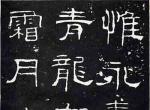 惟永
青龍
霜月